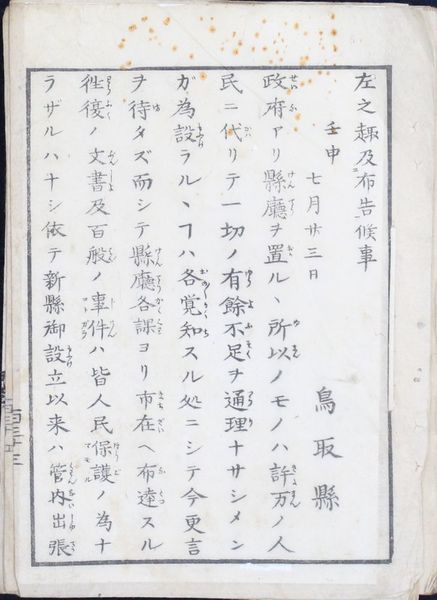 左之趣及布告候事
壬申 七月廿三日
鳥取縣
政府アリ縣廳ヲ置ル、所以ノモノハ許万ノ人
民ニ代リテ一切ノ有餘不足ヲ通理ナサシメン
ガ為設ラル、ヿハ各覚知スル処ニシテ今更言
ヲ待タズ而シテ縣廳各課ヨリ市在ヘ布達スル
徃復ノ文書及百般ノ事件ハ皆人民保護ノ為ナ
ラザルハナシ依テ新縣御設立以来ハ管内出張